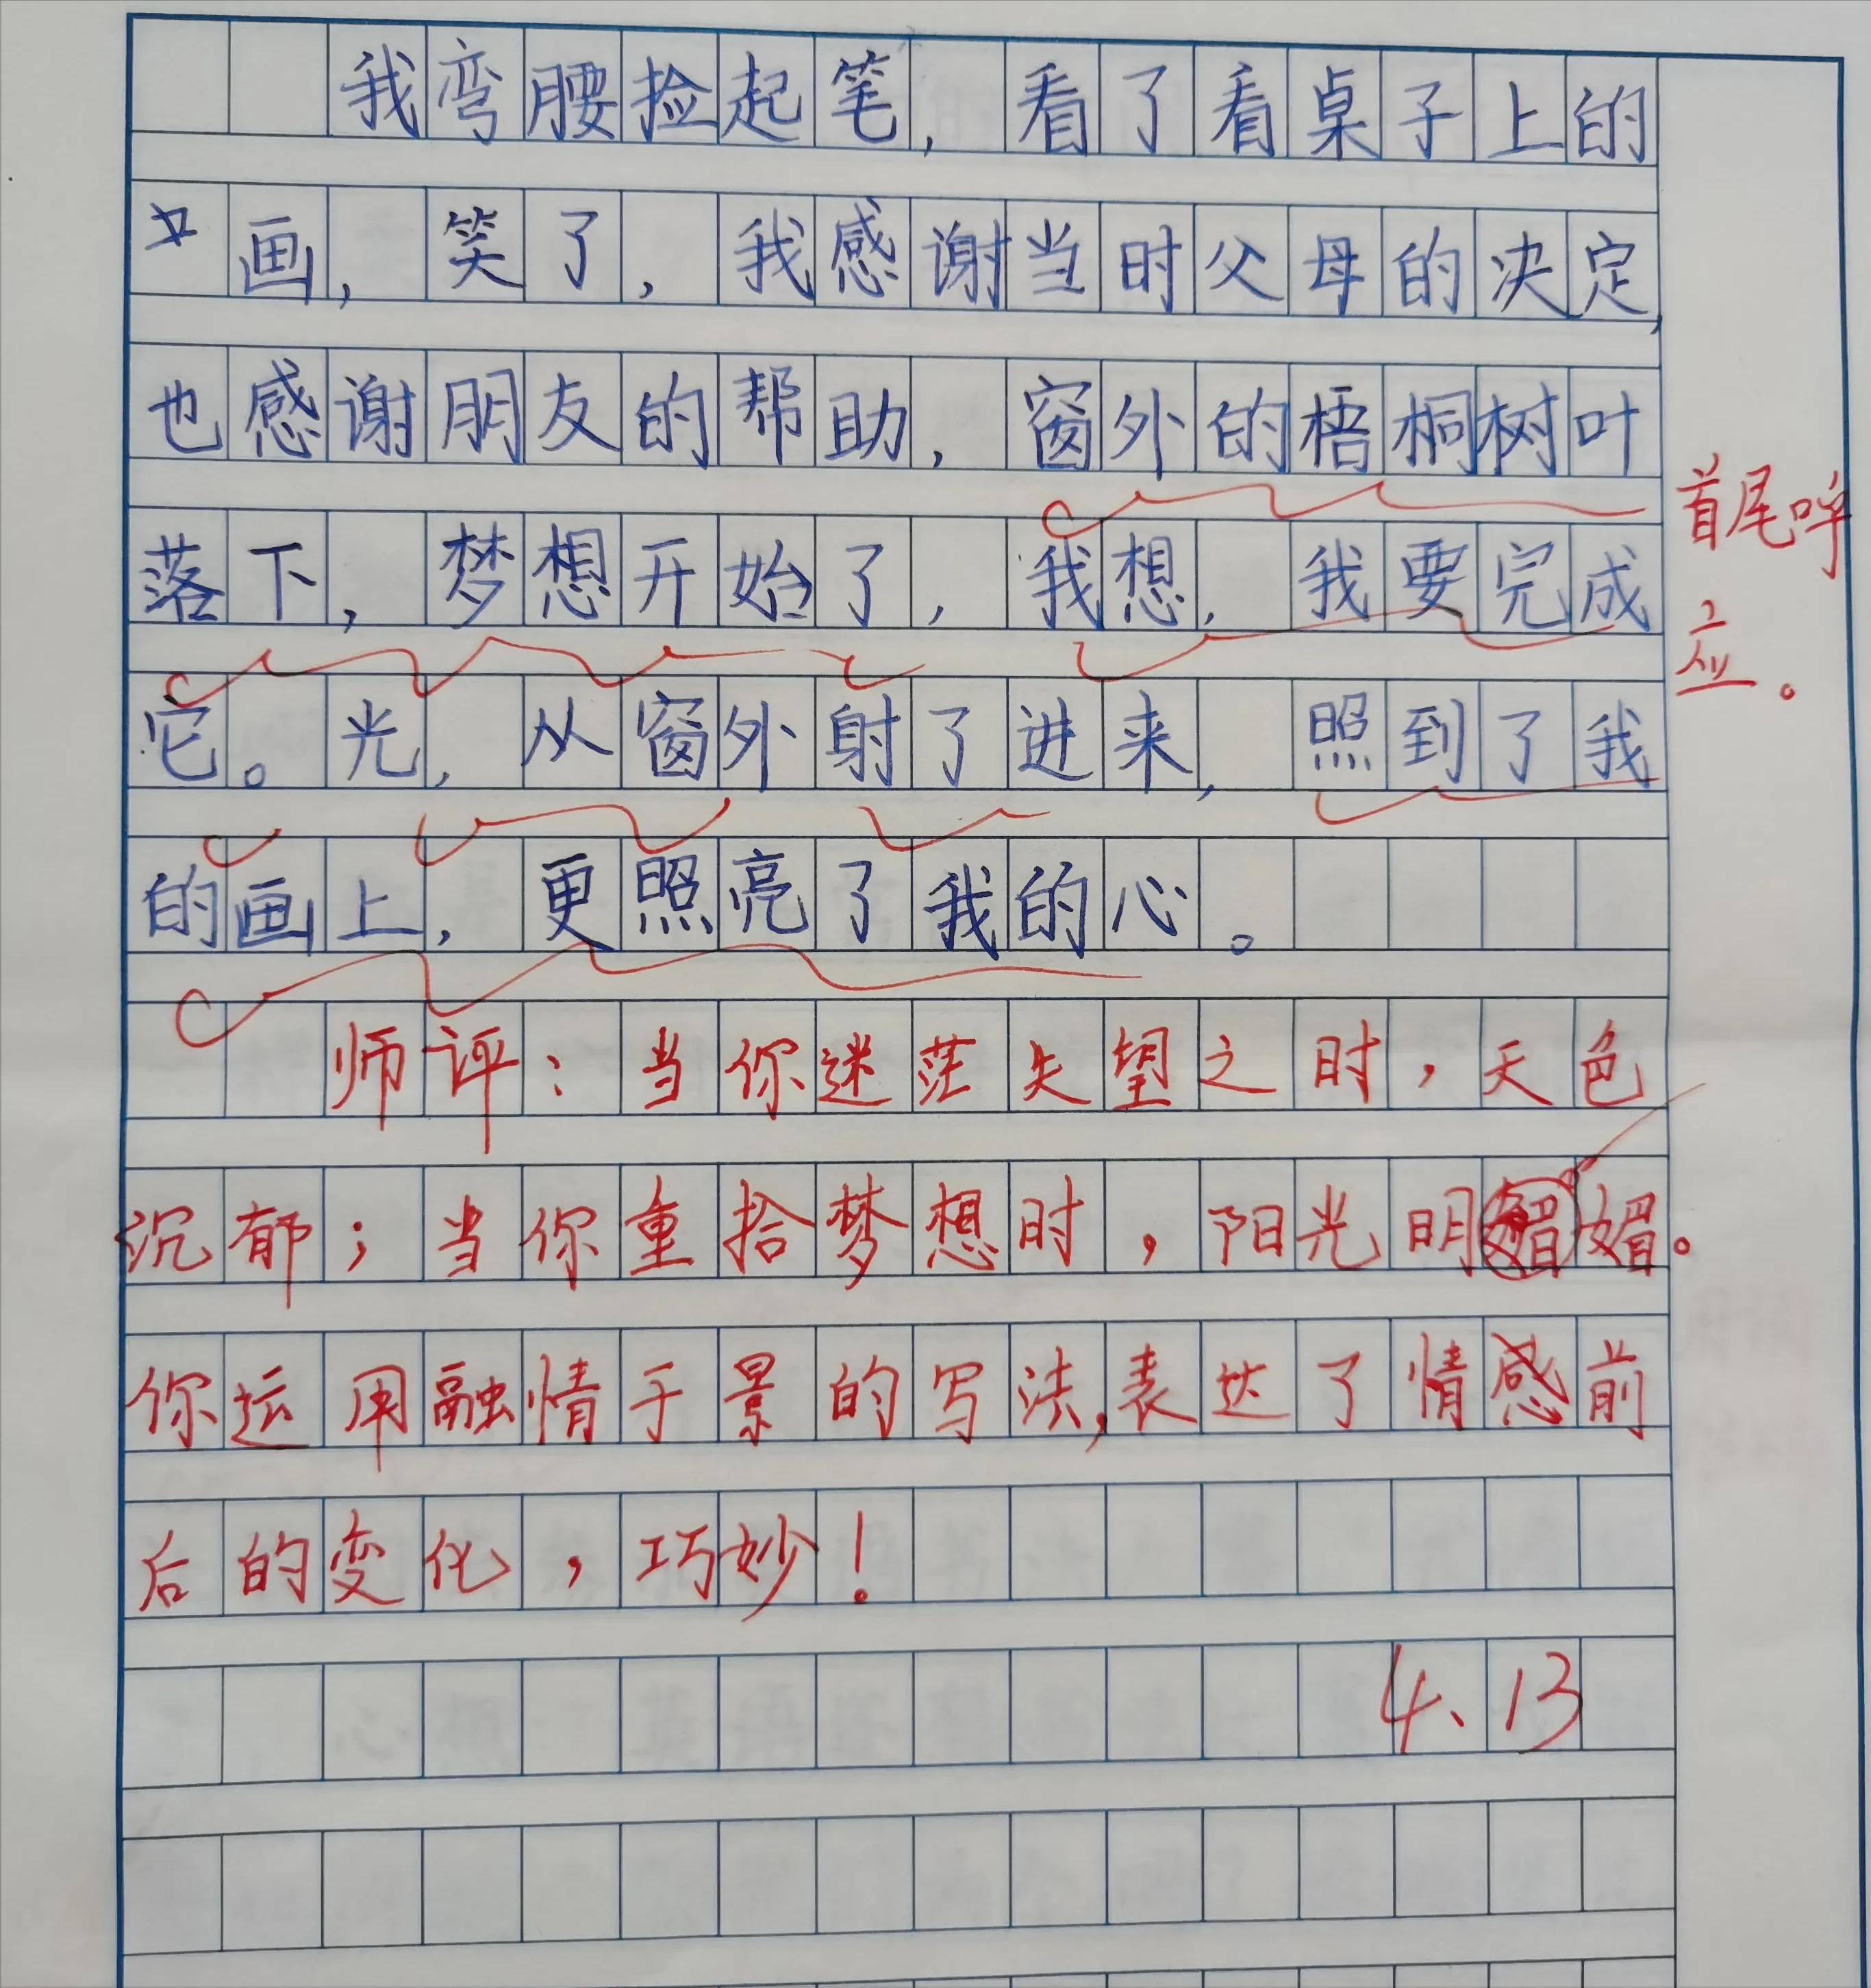 我弯腰捡起笔，看了看桌子上的
画，笑了，我感谢当时父母的决定，
也感谢朋友的帮助，窗外的梧桐树叶
落下，梦想开始了，我想，我要完成
它。光，从窗外射了进来，照到了我
的画上，更照亮了我的心。
首尾呼
应。
师评：当你迷茫失望之时，天色
沉郁；当你重拾梦想时，阳光明媚。
你运用融情于景的写法，表达了情感前
后的变化，巧妙！
4、13